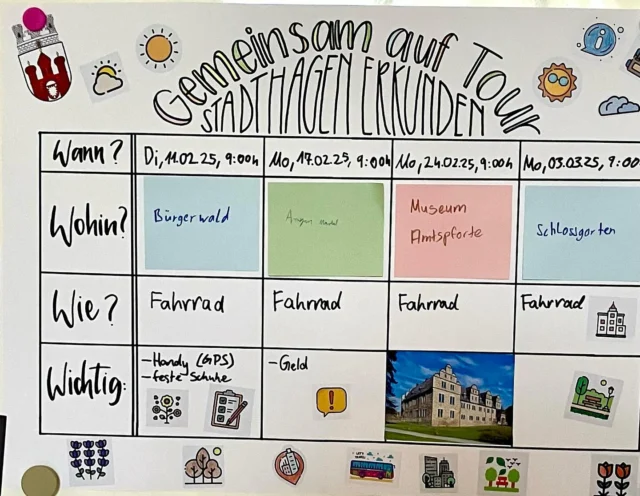 Gemeinsam auf Tour
STADTHAGEN ERKUNDEN
Wann? Di, 11.02.25, 9:00h Mo, 17.02.25, 9:00h Mo, 24.02.25, 9:00h Mo, 03.03.25, 9:00
Wohin? Bürgerwald Museum Amtspforte Schlossgarten
Wie? Fahrrad Fahrrad Fahrrad Fahrrad
Wichtig: -Handy (GPS) -Geld
-feste Schuhe